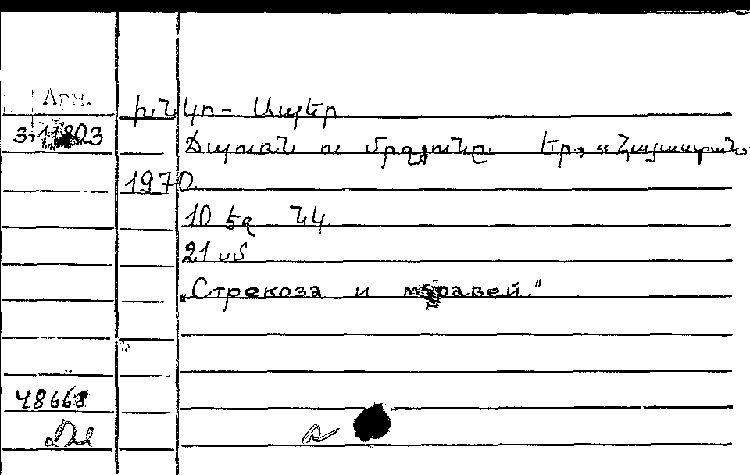 Арм.
Խնկո - Ապեր
Ծպուռն ու մրջյունը. Եր., «Հայաստան»
1970.
10 էջ նկ.
21 սմ
„Стрекоза и муравей."